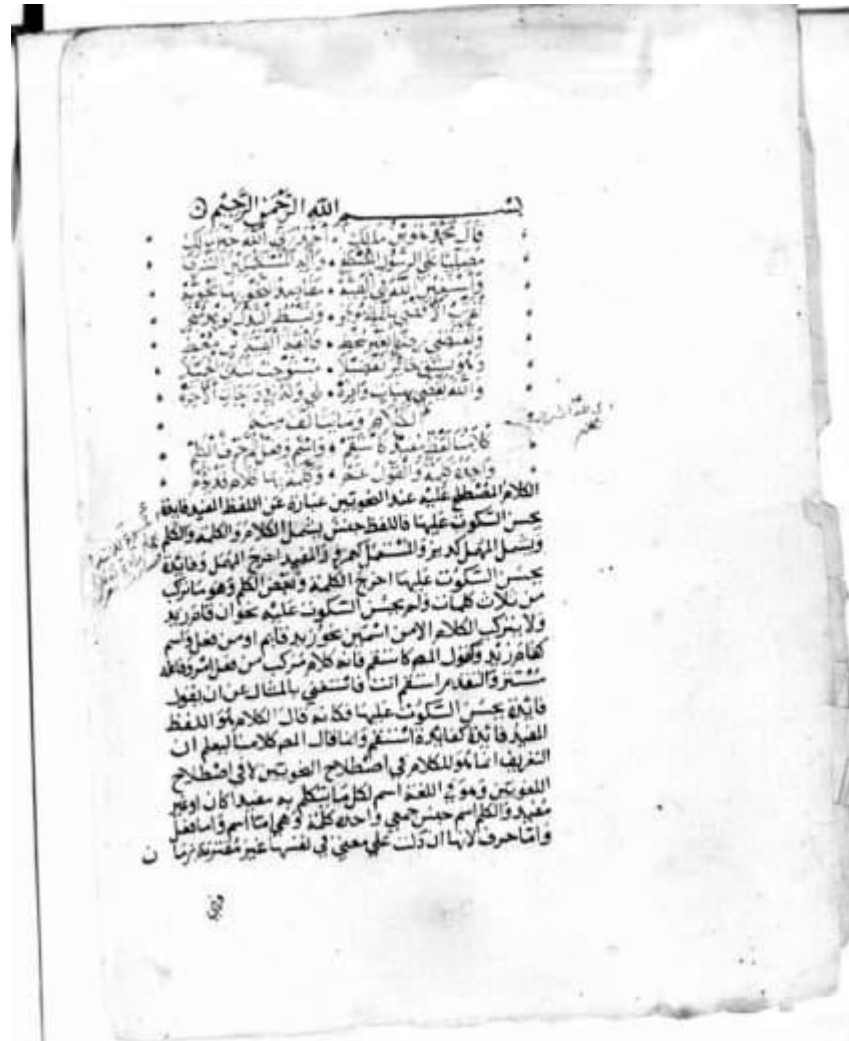 بسم الله الرحمن الرحيم
قال محمد هو ابن مالك • احمد ربي الله خير مالك
مصليا على الرسول المصطفى • وآله المستكملين الشرفا
واستعين الله في الفيه • مقاصد النحو بها محويه
تقرب الاقصى بلفظ موجز • وتبسط البذل بوعد منجز
وتقتضي رضا بغير سخط • فائقة الفية ابن معطي
وهو بسبق حائز تفضيلا • مستوجب ثنائي الجميلا
والله يقضي بهبات وافره • لي وله في درجات الآخره
الكلام وما يتالف منه
كلامنا لفظ مفيد كاستقم • واسم وفعل ثم حرف الكلم
واحده كلمة والقول عم • وكلمة بها كلام قد يؤم
الكلام المصطلح عليه عند النحويين عبارة عن اللفظ المفيد فايدة
يحسن السكوت عليها فاللفظ جنس يشمل الكلام والكلمة والكلم
ويشمل المهمل كديز والمستعمل كعمرو والمفيد اخرج المهمل وفايدة
يحسن السكوت عليها اخرج الكلمة وبعض الكلم وهو ما تركب
من ثلاث كلمات ولم يحسن السكوت عليه نحو ان قام زيد
ولا يتركب الكلام الا من اسمين نحو زيد قايم او من فعل واسم
كقام زيد وكقول المص كاستقم فانه كلام مركب من فعل امر وفاعله
مستتر والتقدير استقم انت فاستغني بالمثال عن ان يقول
فايدة يحسن السكوت عليها فكانه قال الكلام هو اللفظ
المفيد فايدة كفايدة استقم وانما قال المص كلامنا ليعلم ان
التعريف انما هو للكلام في اصطلاح النحويين لا في اصطلاح
اللغويين وهو في اللغة اسم لكل ما يتكلم به مفيدا كان او غير
مفيد والكلم اسم جنس جمعي واحده كلمة وهي اما اسم واما فعل
واما حرف لانها ان دلت على معنى في نفسها غير مقترنة بزما
ن